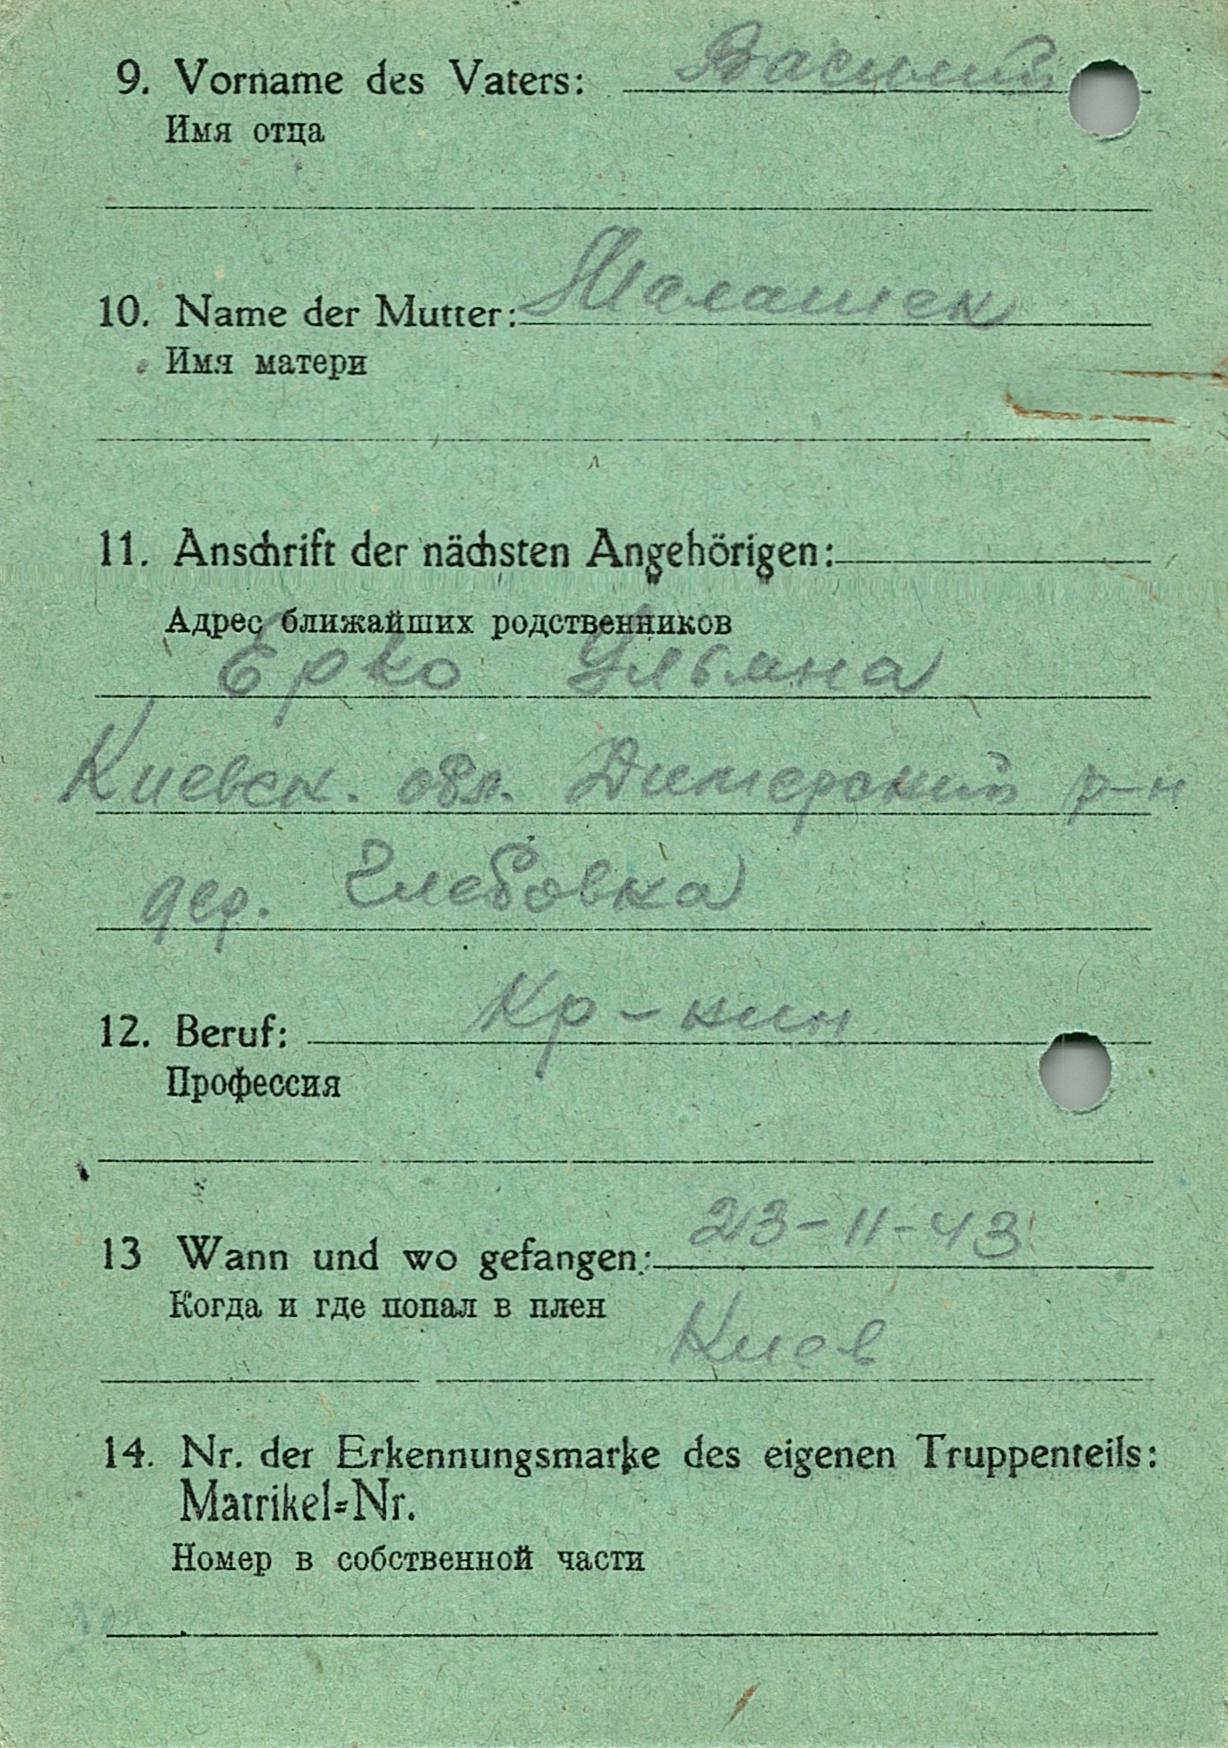 9. Vorname des Vaters: Василий
Имя отца
10. Name der Mutter: Малашек
Имя матери
11. Anschrift der nächsten Angehörigen:
Адрес ближайших родственников
Ерко Ульяна
Киевск. обл. Димерский р-н
дер. Глебовка
12. Beruf: Кр-кин
Профессия
13 Wann und wo gefangen: 23-11-43
Когда и где попал в плен
Киев
14. Nr. der Erkennungsmarke des eigenen Truppenteils:
Matrikel=Nr.
Номер в собственной части